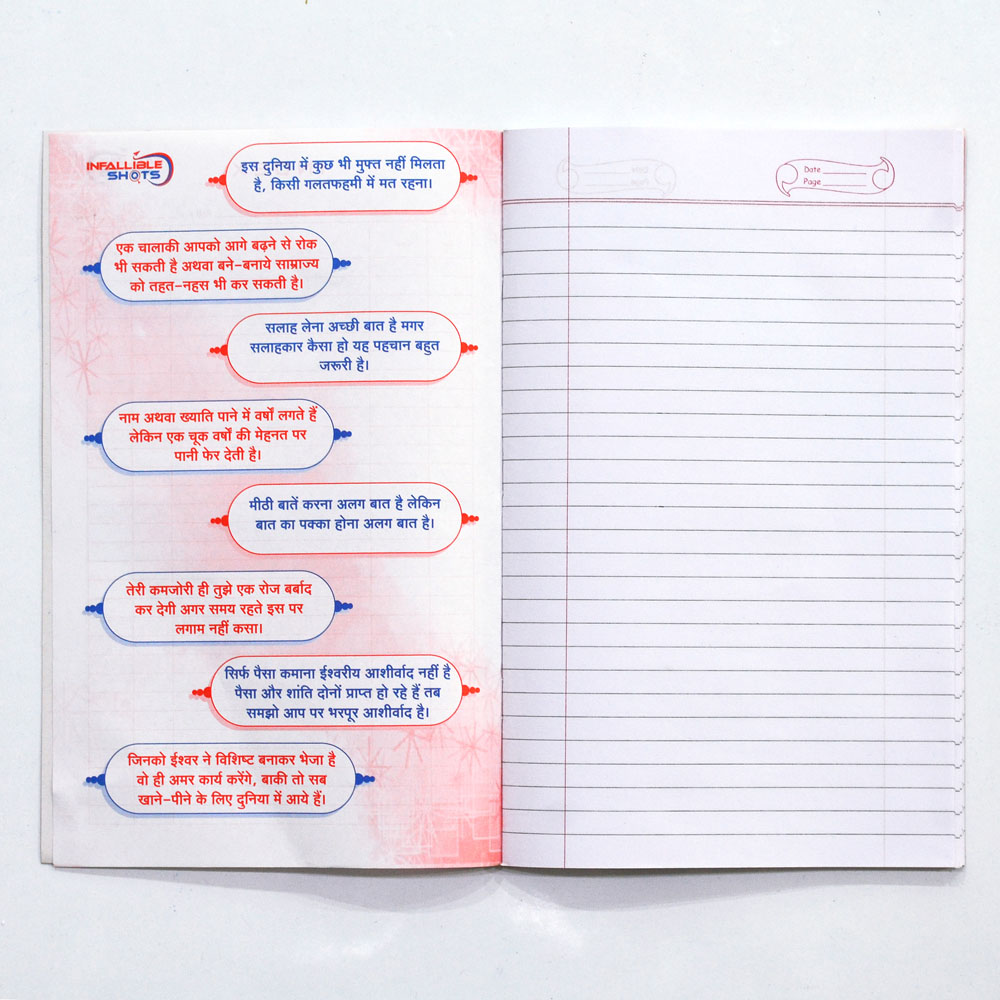 INFALLIBLE
SHOTS
इस दुनिया में कुछ भी मुफ्त नहीं मिलता
है, किसी गलतफहमी में मत रहना।
एक चालाकी आपको आगे बढ़ने से रोक
भी सकती है अथवा बने-बनाये साम्राज्य
को तहत-नहस भी कर सकती है।
सलाह लेना अच्छी बात है मगर
सलाहकार कैसा हो यह पहचान बहुत
जरूरी है।
नाम अथवा ख्याति पाने में वर्षों लगते हैं
लेकिन एक चूक वर्षों की मेहनत पर
पानी फेर देती है।
मीठी बातें करना अलग बात है लेकिन
बात का पक्का होना अलग बात है।
तेरी कमजोरी ही तुझे एक रोज बर्बाद
कर देगी अगर समय रहते इस पर
लगाम नहीं कसा।
सिर्फ पैसा कमाना ईश्वरीय आशीर्वाद नहीं है
पैसा और शांति दोनों प्राप्त हो रहे हैं तब
समझो आप पर भरपूर आशीर्वाद है।
जिनको ईश्वर ने विशिष्ट बनाकर भेजा है
वो ही अमर कार्य करेंगे, बाकी तो सब
खाने-पीने के लिए दुनिया में आये हैं।
Date
Page